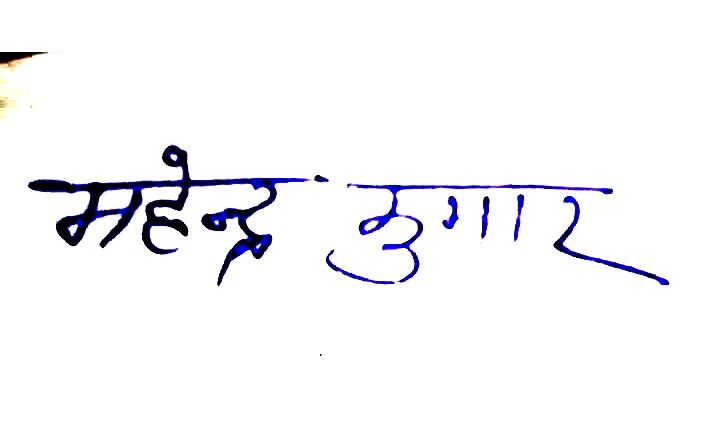 महेन्द्र कुमार